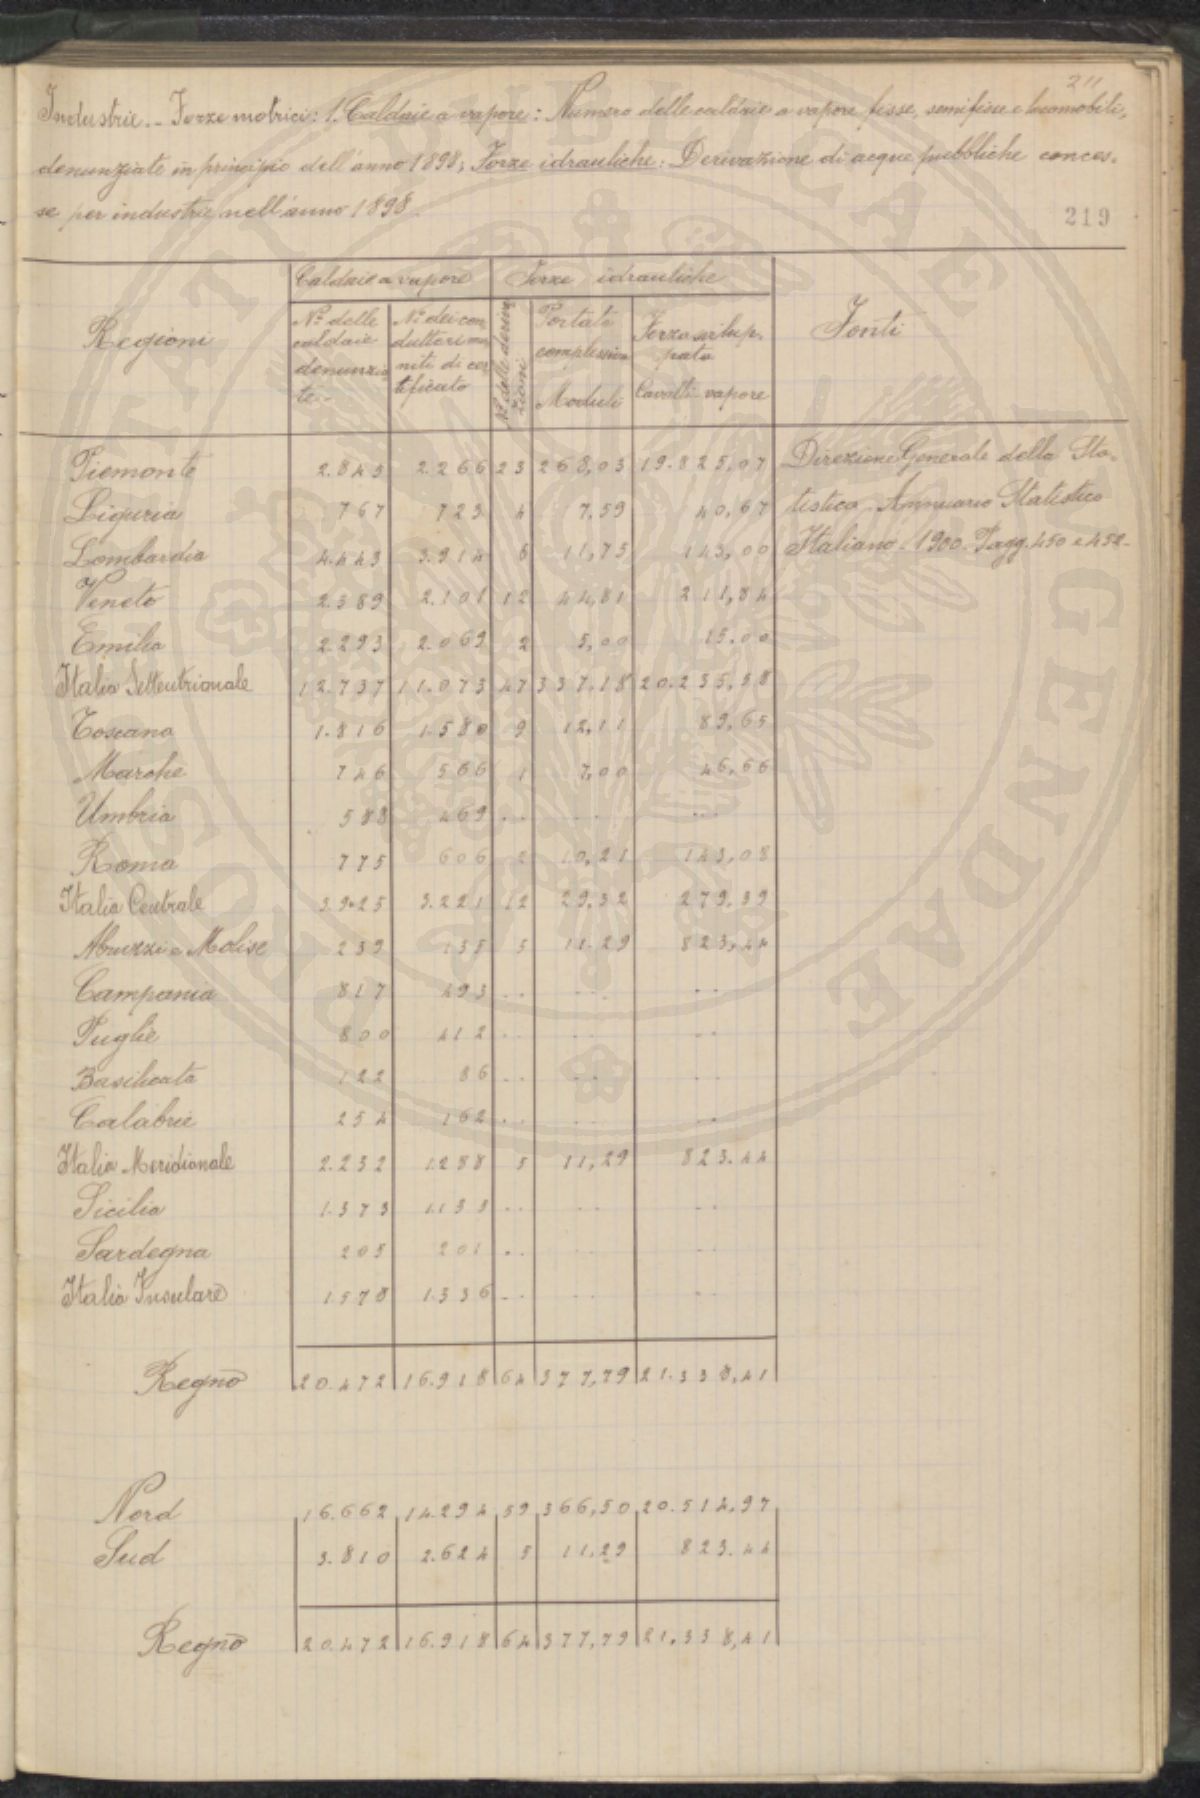 211
Industrie. - Forze motrici: 1. Caldaie a vapore: Numero delle caldaie a vapore fisse, semifisse e locomobili,
denunziate in principio dell'anno 1898; Forze idrauliche: Derivazione di acque pubbliche conces-
se per industrie nell'anno 1898.
219
Regioni
Caldaie a vapore
Forze idrauliche
Fonti
N° delle caldaie denunziate.
N° dei conduttori muniti di certificato
N. delle derivazioni
Portata complessiva Moduli
Forza svilup-pata Cavalli-vapore
Piemonte 2.845 2.266 23 268,03 19.825,07 Direzione Generale della Sta-
Liguria 767 723 4 7,59 40,67 tistica - Annuario Statistico
Lombardia 4.443 3.914 6 11,75 143,00 Italiano - 1900 - Pagg. 450 e 452 -
Veneto 2.389 2.101 12 44,81 211,84
Emilia 2.293 2.069 2 5,00 15.00
Italia Settentrionale 12.737 11.073 47 337,18 20.235,58
Toscana 1.816 1.580 9 12,11 89,65
Marche 746 566 1 7,00 46,66
Umbria 588 469 .. ... ...
Roma 775 606 2 10,21 143,08
Italia Centrale 3.925 3.221 12 29,32 279,39
Abruzzi e Molise 239 135 5 11.29 823,44
Campania 817 493 .. ... ..
Puglie 800 412 .. ... ..
Basilicata 122 86 .. .. ..
Calabrie 254 162 .. ... ..
Italia Meridionale 2.232 1.288 5 11,29 823.44
Sicilia 1.373 1.135 .. .. ..
Sardegna 205 201 .. ..
Italia Insulare 1.578 1.336 .. .. ..
Regno 20.472 16.918 64 377,79 21.338,41
Nord 16.662 14.294 59 366,50 20.514,97
Sud 3.810 2.624 5 11,29 823.44
Regno 20.472 16.918 64 377,79 21.338,41